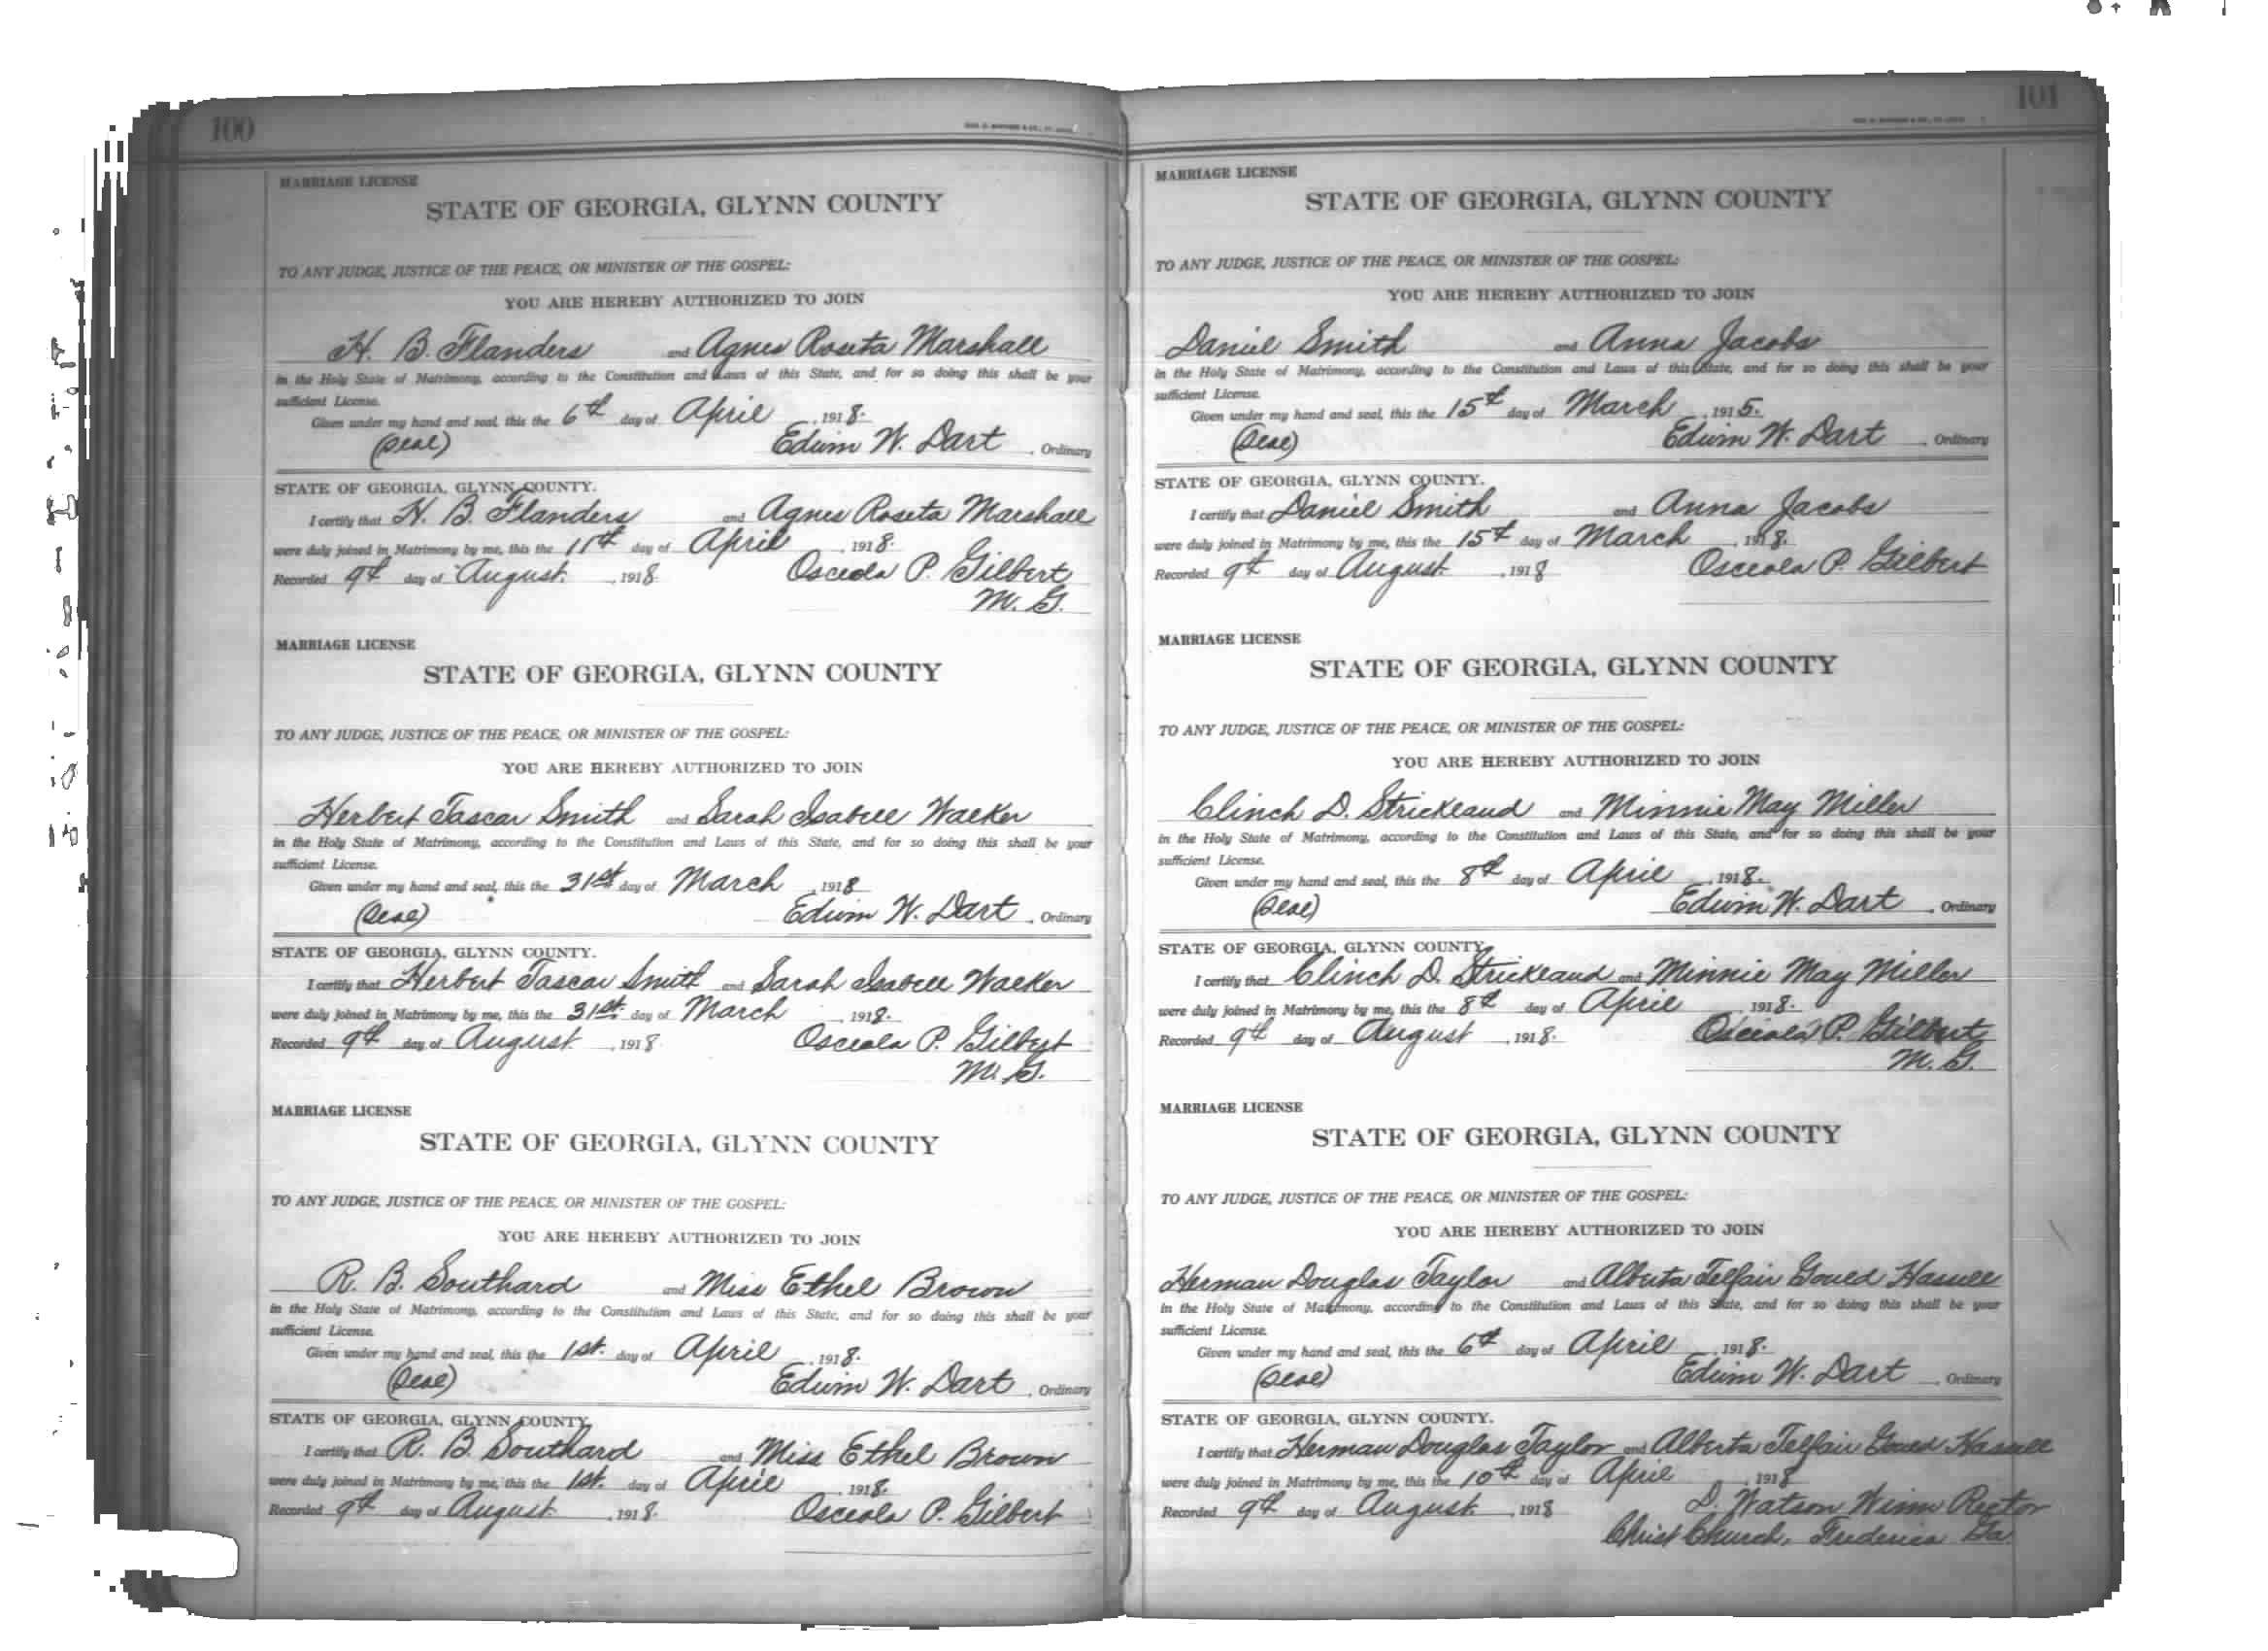 100
MARRIAGE LICENSE
STATE OF GEORGIA, GLYNN COUNTY
TO ANY JUDGE, JUSTICE OF THE PEACE, OR MINISTER OF THE GOSPEL:
YOU ARE HEREBY AUTHORIZED TO JOIN
H. B. Flanders and Agnes Roseta Marshall
in the Holy State of Matrimony, according to the Constitution and Laws of this State, and for so doing this shall be your
sufficient License.
Given under my hand and seal, this the 6th day of April, 1918.
(Seal) Edwin W. Dart, Ordinary
STATE OF GEORGIA, GLYNN COUNTY.
I certify that H. B. Flanders and Agnes Roseta Marshall
were duly joined in Matrimony by me, this the 11th day of April, 1918.
Recorded 9th day of August, 1918 Osceola P. Gilbert
M. G.
MARRIAGE LICENSE
STATE OF GEORGIA, GLYNN COUNTY
TO ANY JUDGE, JUSTICE OF THE PEACE, OR MINISTER OF THE GOSPEL:
YOU ARE HEREBY AUTHORIZED TO JOIN
Herbert Tascar Smith and Sarah Isabell Walker
in the Holy State of Matrimony, according to the Constitution and Laws of this State, and for so doing this shall be your
sufficient License.
Given under my hand and seal, this the 31st day of March, 1918
(Seal) Edwin W. Dart, Ordinary
STATE OF GEORGIA, GLYNN COUNTY.
I certify that Herbert Tascar Smith and Sarah Isabell Walker
were duly joined in Matrimony by me, this the 31st. day of March, 1918.
Recorded 9th day of August, 1918 Osceola P. Gilbert
M. G.
MARRIAGE LICENSE
STATE OF GEORGIA, GLYNN COUNTY
TO ANY JUDGE, JUSTICE OF THE PEACE, OR MINISTER OF THE GOSPEL:
YOU ARE HEREBY AUTHORIZED TO JOIN
R. B. Southard and Miss Ethel Brown
in the Holy State of Matrimony, according to the Constitution and Laws of this State, and for so doing this shall be your
sufficient License.
Given under my hand and seal, this the 1st. day of April, 1918.
(Seal) Edwin W. Dart, Ordinary
STATE OF GEORGIA, GLYNN COUNTY.
I certify that R. B. Southard and Miss Ethel Brown
were duly joined in Matrimony by me, this the 1st. day of April, 1918.
Recorded 9th day of August, 1918. Osceola P. Gilbert
101
MARRIAGE LICENSE
STATE OF GEORGIA, GLYNN COUNTY
TO ANY JUDGE, JUSTICE OF THE PEACE, OR MINISTER OF THE GOSPEL:
YOU ARE HEREBY AUTHORIZED TO JOIN
Daniel Smith and Anna Jacobs
in the Holy State of Matrimony, according to the Constitution and Laws of this State, and for so doing this shall be your
sufficient License.
Given under my hand and seal, this the 15th day of March, 1915.
(Seal) Edwin W. Dart, Ordinary
STATE OF GEORGIA, GLYNN COUNTY.
I certify that Daniel Smith and Anna Jacobs
were duly joined in Matrimony by me, this the 15th day of March, 1918.
Recorded 9th day of August, 1918 Osceola P. Gilbert
MARRIAGE LICENSE
STATE OF GEORGIA, GLYNN COUNTY
TO ANY JUDGE, JUSTICE OF THE PEACE, OR MINISTER OF THE GOSPEL:
YOU ARE HEREBY AUTHORIZED TO JOIN
Clinch D. Strickland and Minnie May Miller
in the Holy State of Matrimony, according to the Constitution and Laws of this State, and for so doing this shall be your
sufficient License.
Given under my hand and seal, this the 8th day of April, 1918.
(Seal) Edwin W. Dart, Ordinary
STATE OF GEORGIA, GLYNN COUNTY.
I certify that Clinch D. Strickland and Minnie May Miller
were duly joined in Matrimony by me, this the 8th day of April, 1918.
Recorded 9th day of August, 1918. Osceola P. Gilbert
M. G.
MARRIAGE LICENSE
STATE OF GEORGIA, GLYNN COUNTY
TO ANY JUDGE, JUSTICE OF THE PEACE, OR MINISTER OF THE GOSPEL:
YOU ARE HEREBY AUTHORIZED TO JOIN
Herman Douglas Taylor and Alberta Telfair Gould
in the Holy State of Matrimony, according to the Constitution and Laws of this State, and for so doing this shall be your
sufficient License.
Given under my hand and seal, this the 6th day of April, 1918.
(Seal) Edwin W. Dart, Ordinary
STATE OF GEORGIA, GLYNN COUNTY.
I certify that Herman Douglas Taylor and Alberta Telfair Gould
were duly joined in Matrimony by me, this the 10th day of April, 1918
Recorded 9th day of August, 1918 D. Watson Winn Rector
Christ Church, Frederica Ga.